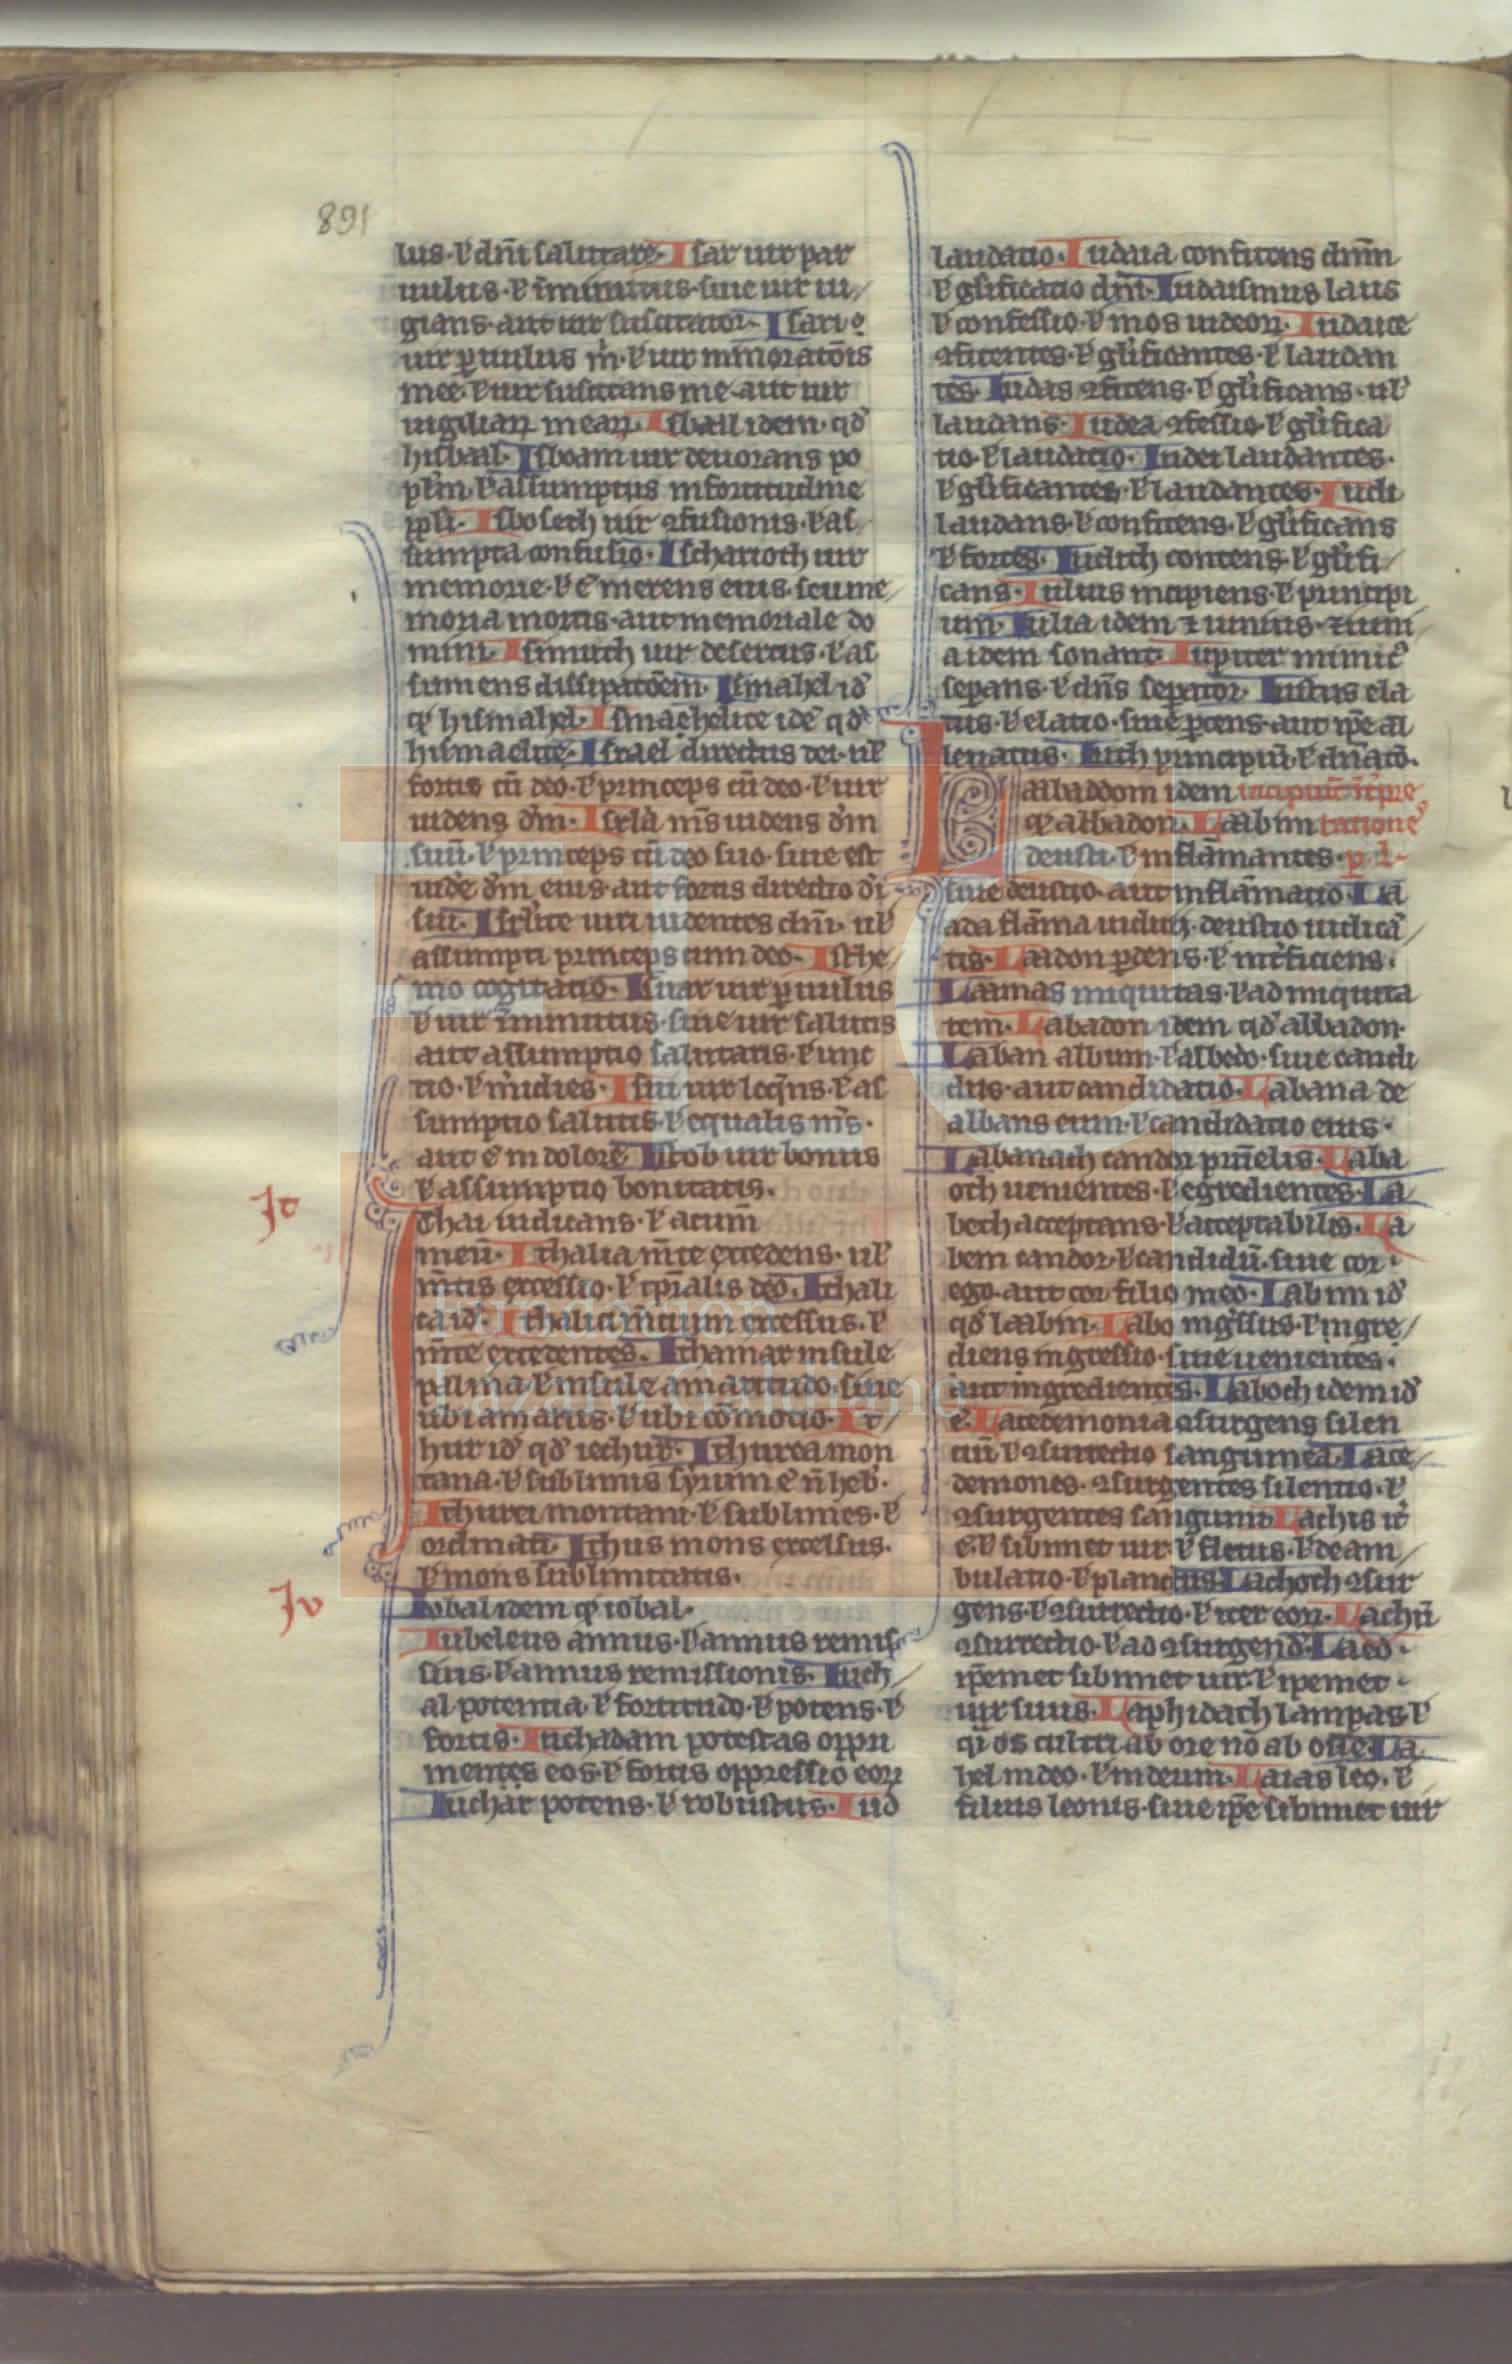 891
lus. ł dn̄i salutare. Isar uir par
uulus. ł īminutus. siue uir iu
gians. aut uir suscitator. Isari ē
uir ꝑuulus m̄. ł uir minoratōis
mee. ł uir suscitans me. aut uir
uigiliaꝝ meaꝝ. Isbail idem. qd̕
hisbaal. Isboam uir deuorans po
pl̄m. ł assumptus infortitudine
ip̄i. Isboseth uir ꝯfusionis. ł as
sumpta confusio. Ischarioth uir
memorie. ł ē merens eius. seu me
moria mortis. aut memoriale do
mini. Ismuch uir desertus. ł as
sumens dissipatōem. Ismahel id̕
qͥ hismahel. Ismaehelite idē qd̕
hismaelite. Israel directus dei. ul̕
fortis cū deo. ł princeps cū deo. ł uir
uidens d̕m. Isrl̕a m̄s uidens d̕m
suū. ł princeps cū deo suo. siue est
uid̕e d̕m eius. aut fortis directio d̕i
sui. Isrl̕ite uiri uidentes dn̄i. ul̕
assumpti princeps cum deo. Isthe
mo cogitatio. Isuar uir ꝑuulus
ł uir īminutus. siue uir salutis
aut assumptio salutaris. ł unc
tio. ł m̕idies. Isui uir loqn̄s. ł as
sumptio salutis. ł equalis m̄s.
aut ē in dolore. Istob uir bonus
ł assumptio bonitatis.
It
Ithai iudicans. ł acum̄
meū. Ithalia m̄te excedens. ul̕
m̄tis excessio. ł tp̄alis deo. Ithali
ca id̕. Ithalici m̄tium excessus. ł
m̄te excedentes. Ithamar insule
palma. ł insule amaritudo. siue
ubi amarus. ł ubi cōmotio. It
hur id̕ qd̕ iechur. Ithurea mon
tana. ł sublimis syrum ē n̄ heb̕.
Ithurei montani. ł sublimes. ł
ordinati. Ithus mons excelsus.
ł mons sublimitatis.
Iv
Iobal idem qͥ iobal.
Iubeleus annus. ł annus remis
sius. ł annus remissionis. Iuch
al potentia. ł fortitudo. ł potens. ł
fortis. Iuchadam potestas oppri
mentes eos. ł fortis oppressio eoꝝ
Iuchar potens. ł robustus. Iud
laudatio. Iudaia confitens dn̄m
ł gl̕ificatio dn̄i. Iudaismus laus
ł confessio. ł mos iudeoꝝ. Iudaice
ꝯfitentes. ł gl̕ificantes. ł laudan
tes. Iudas ꝯfitens. ł gl̕ificans. ul̕
laudans. Iudea ꝯfessio. ł gl̕ifica
tio. ł laudatio. Iudei laudantes.
ł gl̕ificantes. ł laudantes. Iudi
laudans. ł confitens. ł gl̕ificans
ł fortes. Iudith contens. ł gl̕ifi
cans. Iulius incipiens. ł principi
um. Iulia idem ⁊ iunius. ⁊ iuni
a idem sonant. Iupiter inimic̕
sepans. ł dn̄s sepator. Iustus ela
tus. ł elatio. siue ꝑcens. aut ip̄e al
leuatus. Iuth principiū. ł dn̄atō.
Laabaddom idem incipiūt īt̕pre
qͥ abbadon. Laabim tatione
deusti. ł inflāmantes. p. l.
siue deustio. aut inflāmatio. La
ada flāma uiduꝝ. deustio iudicā
tis. Laadon ꝑdens. ł int̕ficiens.
Laamas iniquitas. ł ad iniquita
tem. Labadon idem qd̕ abbadon.
Laban album. ł albedo. siue candi
dus. aut candidatio. Labana de
albans eum. ł candidatio eius.
Labanach candor prūelis. Laba
oth uenientes. ł egredientes. La
bech acceptans. ł acceptabilis. La
bem candor. ł candidū. siue cor
ego. aut cor filio meo. Labiim id̕
qd̕ laabim. Labo ing̕ssus. ł ingre
diens ingressio. siue uenientes.
aut ingredientes. Laboch idem id̕
ē. Lacedemonia ꝯsurgens silen
tiū. ł ꝯsurrectio sanguinea. Lace
demones. ꝯsurgentes silentio. ł
ꝯsurgentes sanguini. Lachis it̕
ē. ł sibimet uir. ł fletus. ł deam
bulatio. ł planctus. Lachoch ꝯsur
gens. ł ꝯsurrectio. ł iter eoꝝ. Lachū
ꝯsurrectio. ł ad ꝯsurgend̕. Laed.
ip̄emet sibimet uir. ł ipemet
uir suus. Laphidach lampas. ł
qͥ os culiti ab ore nō ab osse. La
hel indeo. ł indeum. Laias leo. ł
filius leonis. siue ip̄e sibimet uir
Fundación
Lázaro Galdiano